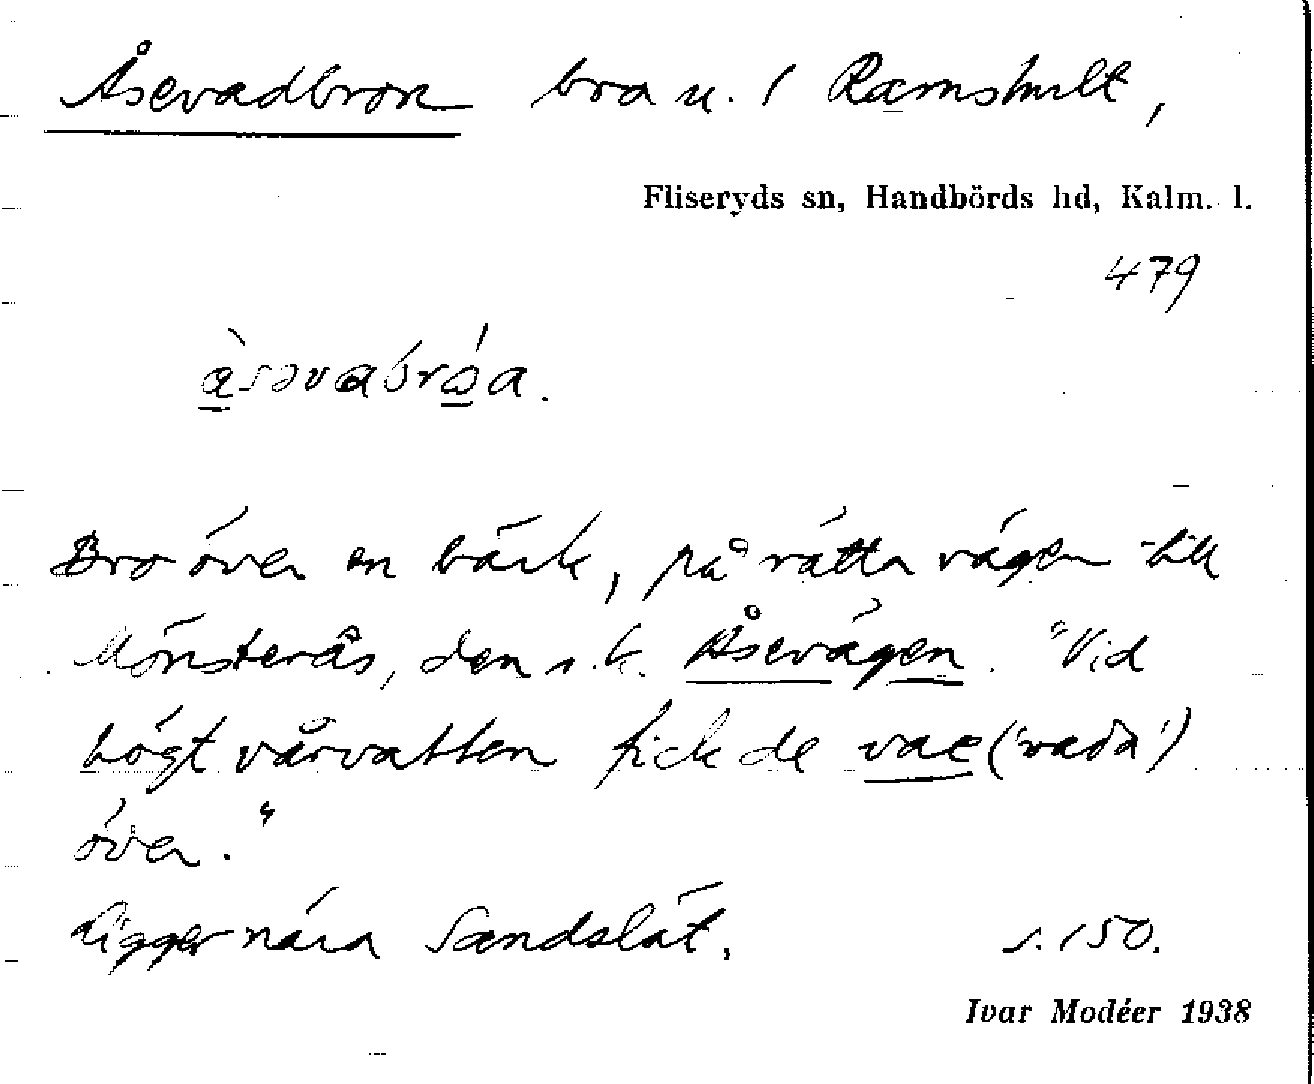 Åsevadbron bro u. / Ramshult,
Fliseryds sn, Handbörds hd, Kalm. l.
479
Bro över en bäck, på rätta vägen till
Mönsterås, den s.k. Åsevägen. "Vid
högt vårvatten fick de vae ('vada')
över."
Ligger nära Sandslät. s. 150.
Ivar Modéer 1938